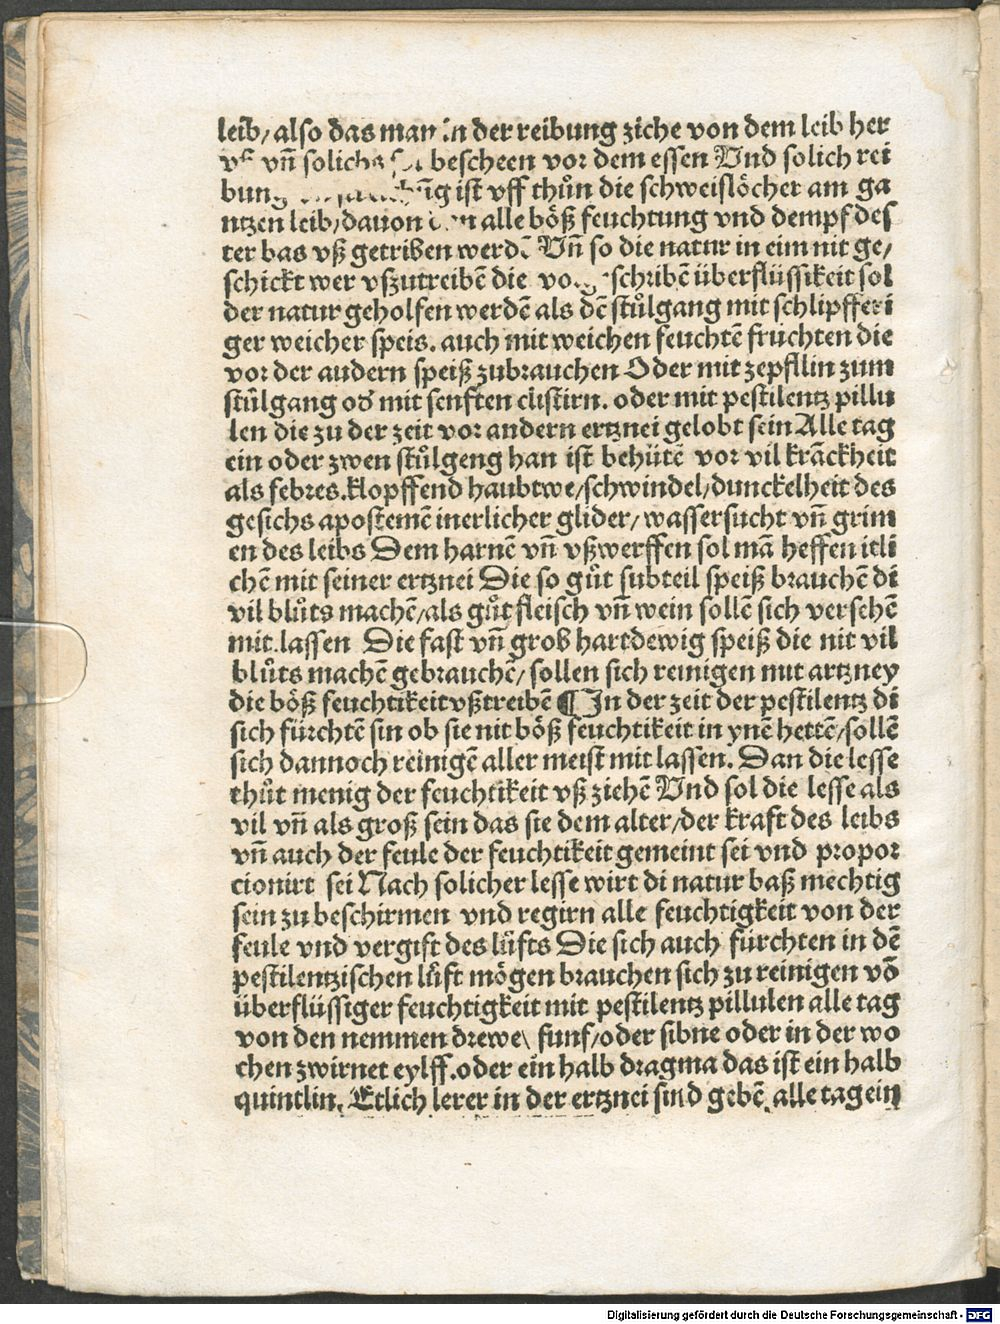 leib/ also das man in der reibung ziche von dem leib her
vß vñ solichs sol bescheen vor dem essen Und solich rei
bung ist vff thůn die schweislöcher am ga
ntzen leib/ dauon alle böß feuchtung vnd dempf des
ter bas vß getriben werdē Uñ so die natur in eim nit ge/
schickt wer vßzutreibē die schribē überflüssikeit sol
der natur geholfen werdē als dē stůlgang mit schlipfferi
ger weicher speis. auch mit weichen feuchtē fruchten die
vor der andern speiß zubrauchen Oder mit zepfllin zum
stůlgang oď mit senften clistirn. oder mit pestilentz pillu
len die zu der zeit vor andern ertznei gelobt sein Alle tag
ein oder zwen stůlgeng han ist behütē vor vil krāckheit
als febres. klopffend haubtwe/ schwindel/ dunckelheit des
gesichs apostemē inerlicher glider/ wassersucht vñ grim
en des leibs Dem harnē vñ vßwerffen sol mā heffen itli
chē mit seiner ertznei Die so gůt subteil speiß brauchē di
vil blůts machē/ als gůt fleisch vñ wein sollē sich versehē
mit.lassen Die fast vñ grob hartdewig speiß die nit vil
blůts machē gebrauchē/ sollen sich reinigen mit artzney
die böß feuchtikeit vßtreibē ¶ In der zeit der pestilentz di
sich fürchtē sin ob sie nit böß feuchtikeit in ynē hettē/ sollē
sich dannoch reinigē aller meist mit lassen. Dan die lesse
thůt menig der feuchtikeit vß ziehē Und sol die lesse als
vil vñ als groß sein das sie dem alter/ der kraft des leibs
vñ auch der feule der feuchtikeit gemeint sei vnd propor
cionirt sei Nach solicher lesse wirt di natur baß mechtig
sein zu beschirmen vnd regirn alle feuchtigkeit von der
feule vnd vergift des lůfts Die sich auch fürchten in dē
pestilentzischen lůft mögen brauchen sich zu reinigen vō
überflüssiger feuchtigkeit mit pestilentz pillulen alle tag
von den nemmen drewe\ funf/ oder sibne oder in der wo
chen zwirnet eylff. oder ein halb dragma das ist ein halb
quintlin. Etlich lerer in der ertznei sind gebē alle tag ein
Digitalisierung gefördert durch die Deutsche Forschungsgemeinschaft - DFG